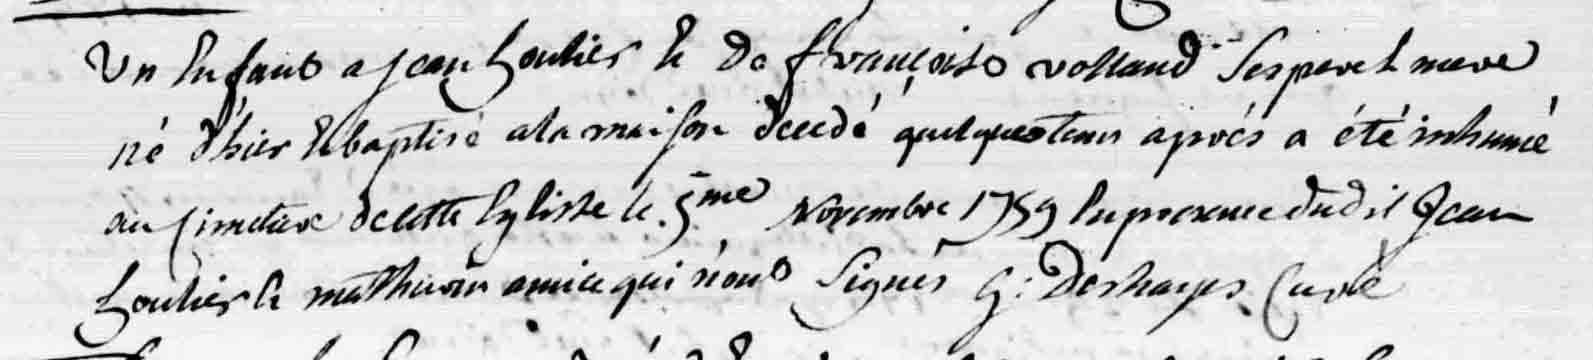 Un Enfant a jean houlier Et De francoise volland Ses pere Et mere
né d'hier Et baptisé a la maison decedé quelque tems aprés a été inhumé
au Cimetiere de cette Eglisse le 5me Novembre 1759 En presence dudit Jean
houlier Et mathurin amice qui n'ont Signés G: Deshayes Curé